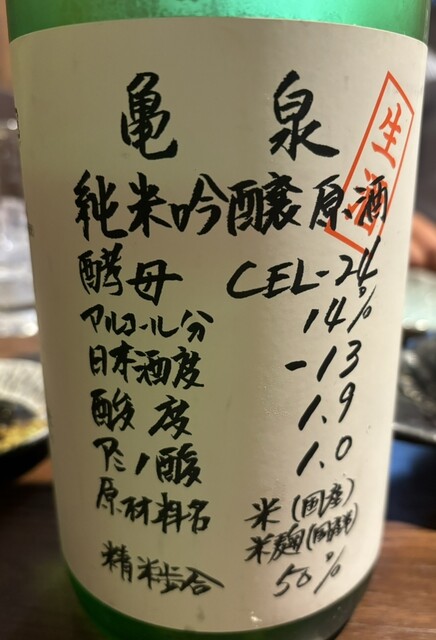 亀泉
生酒
純米吟醸原酒
酵母 CEL-24
アルコール分 14%
日本酒度 -13
酸度 1.9
アミノ酸 1.0
原材料名 米(国産)
米麹(国産米)
精米歩合 50%